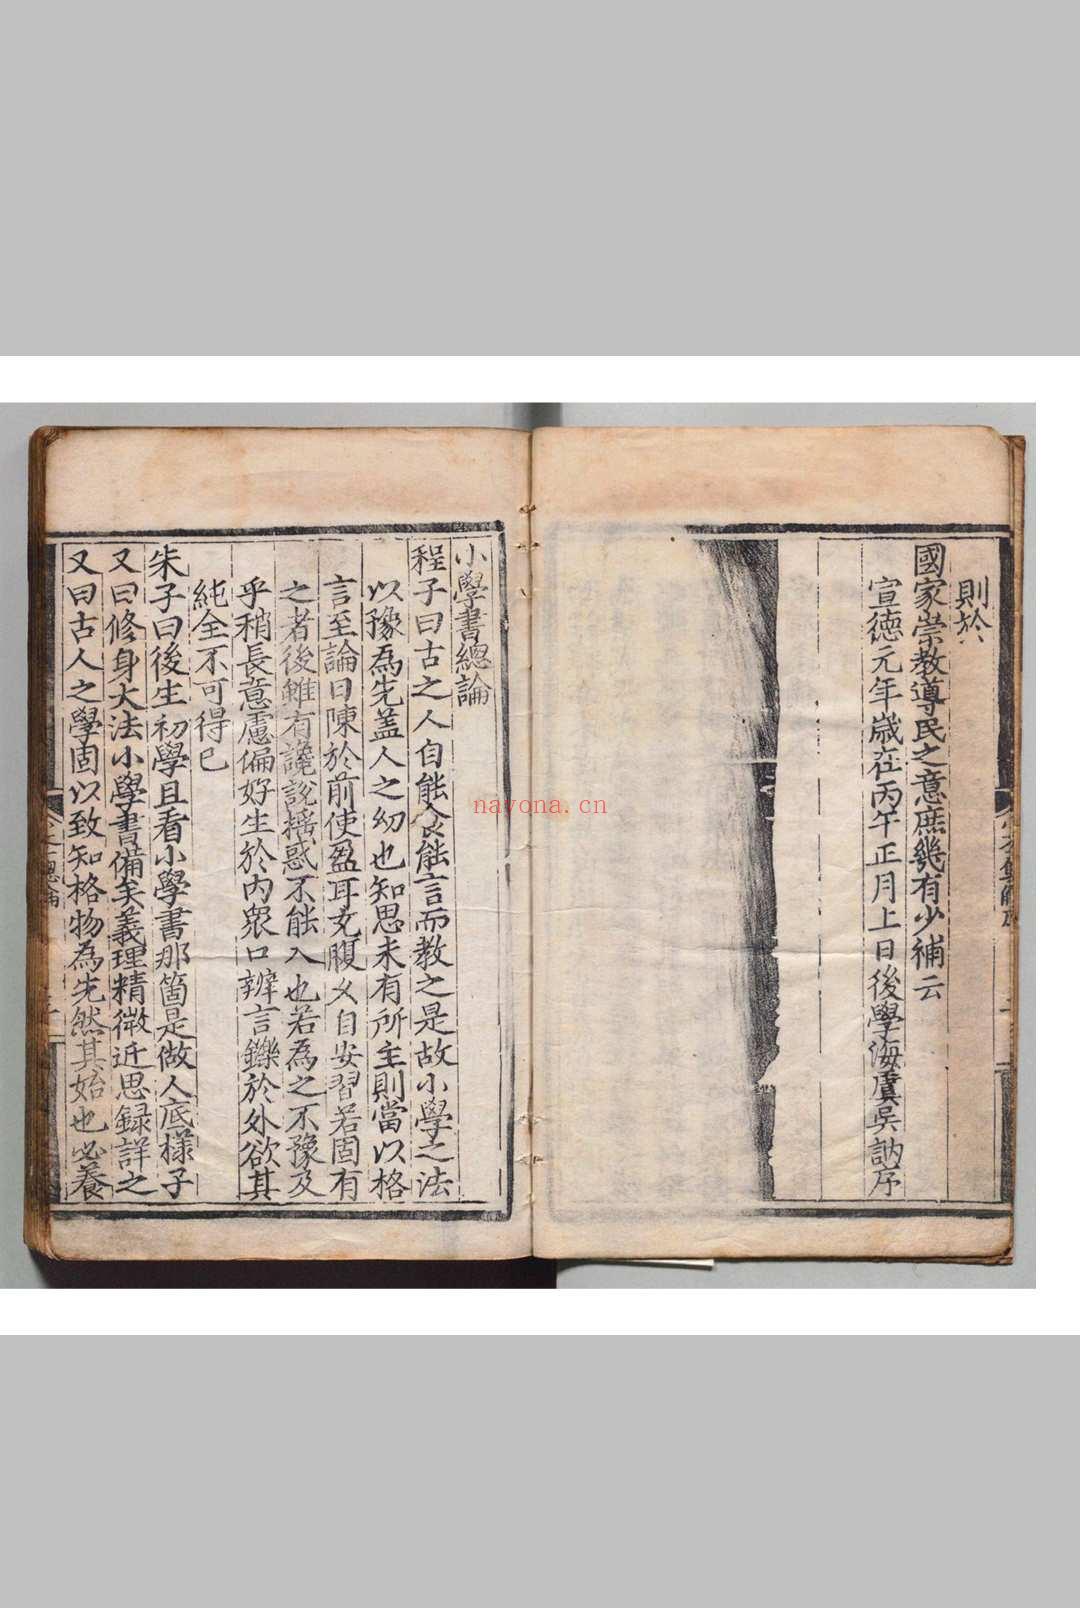 則於
國家崇教導民之意庶幾有少補云
宣德元年歲在丙午正月上日後學海虞吳訥序
小學書總論
程子曰古之人自能食能言而教之是故小學之法
以豫爲先盖人之幼也知思未有所主則當以格
言至論日陳於前使盈耳充腹久自安習若固有
之者後雖有讒說揺惑不能入也若為之不豫及
乎稍長意慮偏好生於內衆口辨言鑠於外欲其
純全不可得已
朱子曰後生初學且看小學書那箇是做人底樣子
又曰修身大法小學書備矣義理精微近思録詳之
又曰古人之學固以致知格物為先然其始也必養
nayona.cn